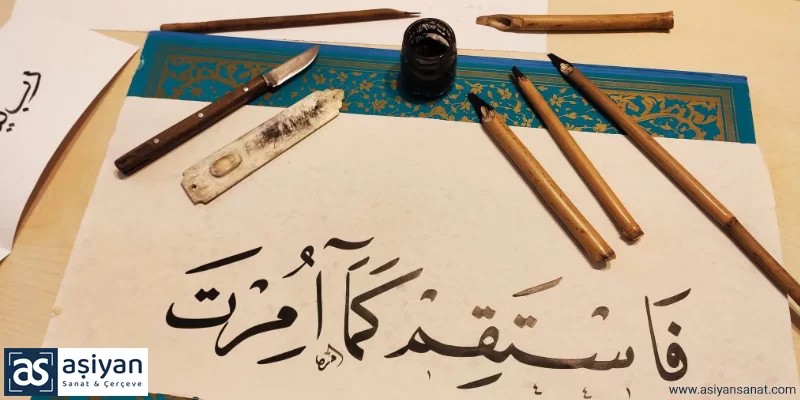 فَاسْتَقِمْ كَمَٓا اُمِرْتَ
aşiyan
Sanat & Çerçeve
www.asiyansanat.com